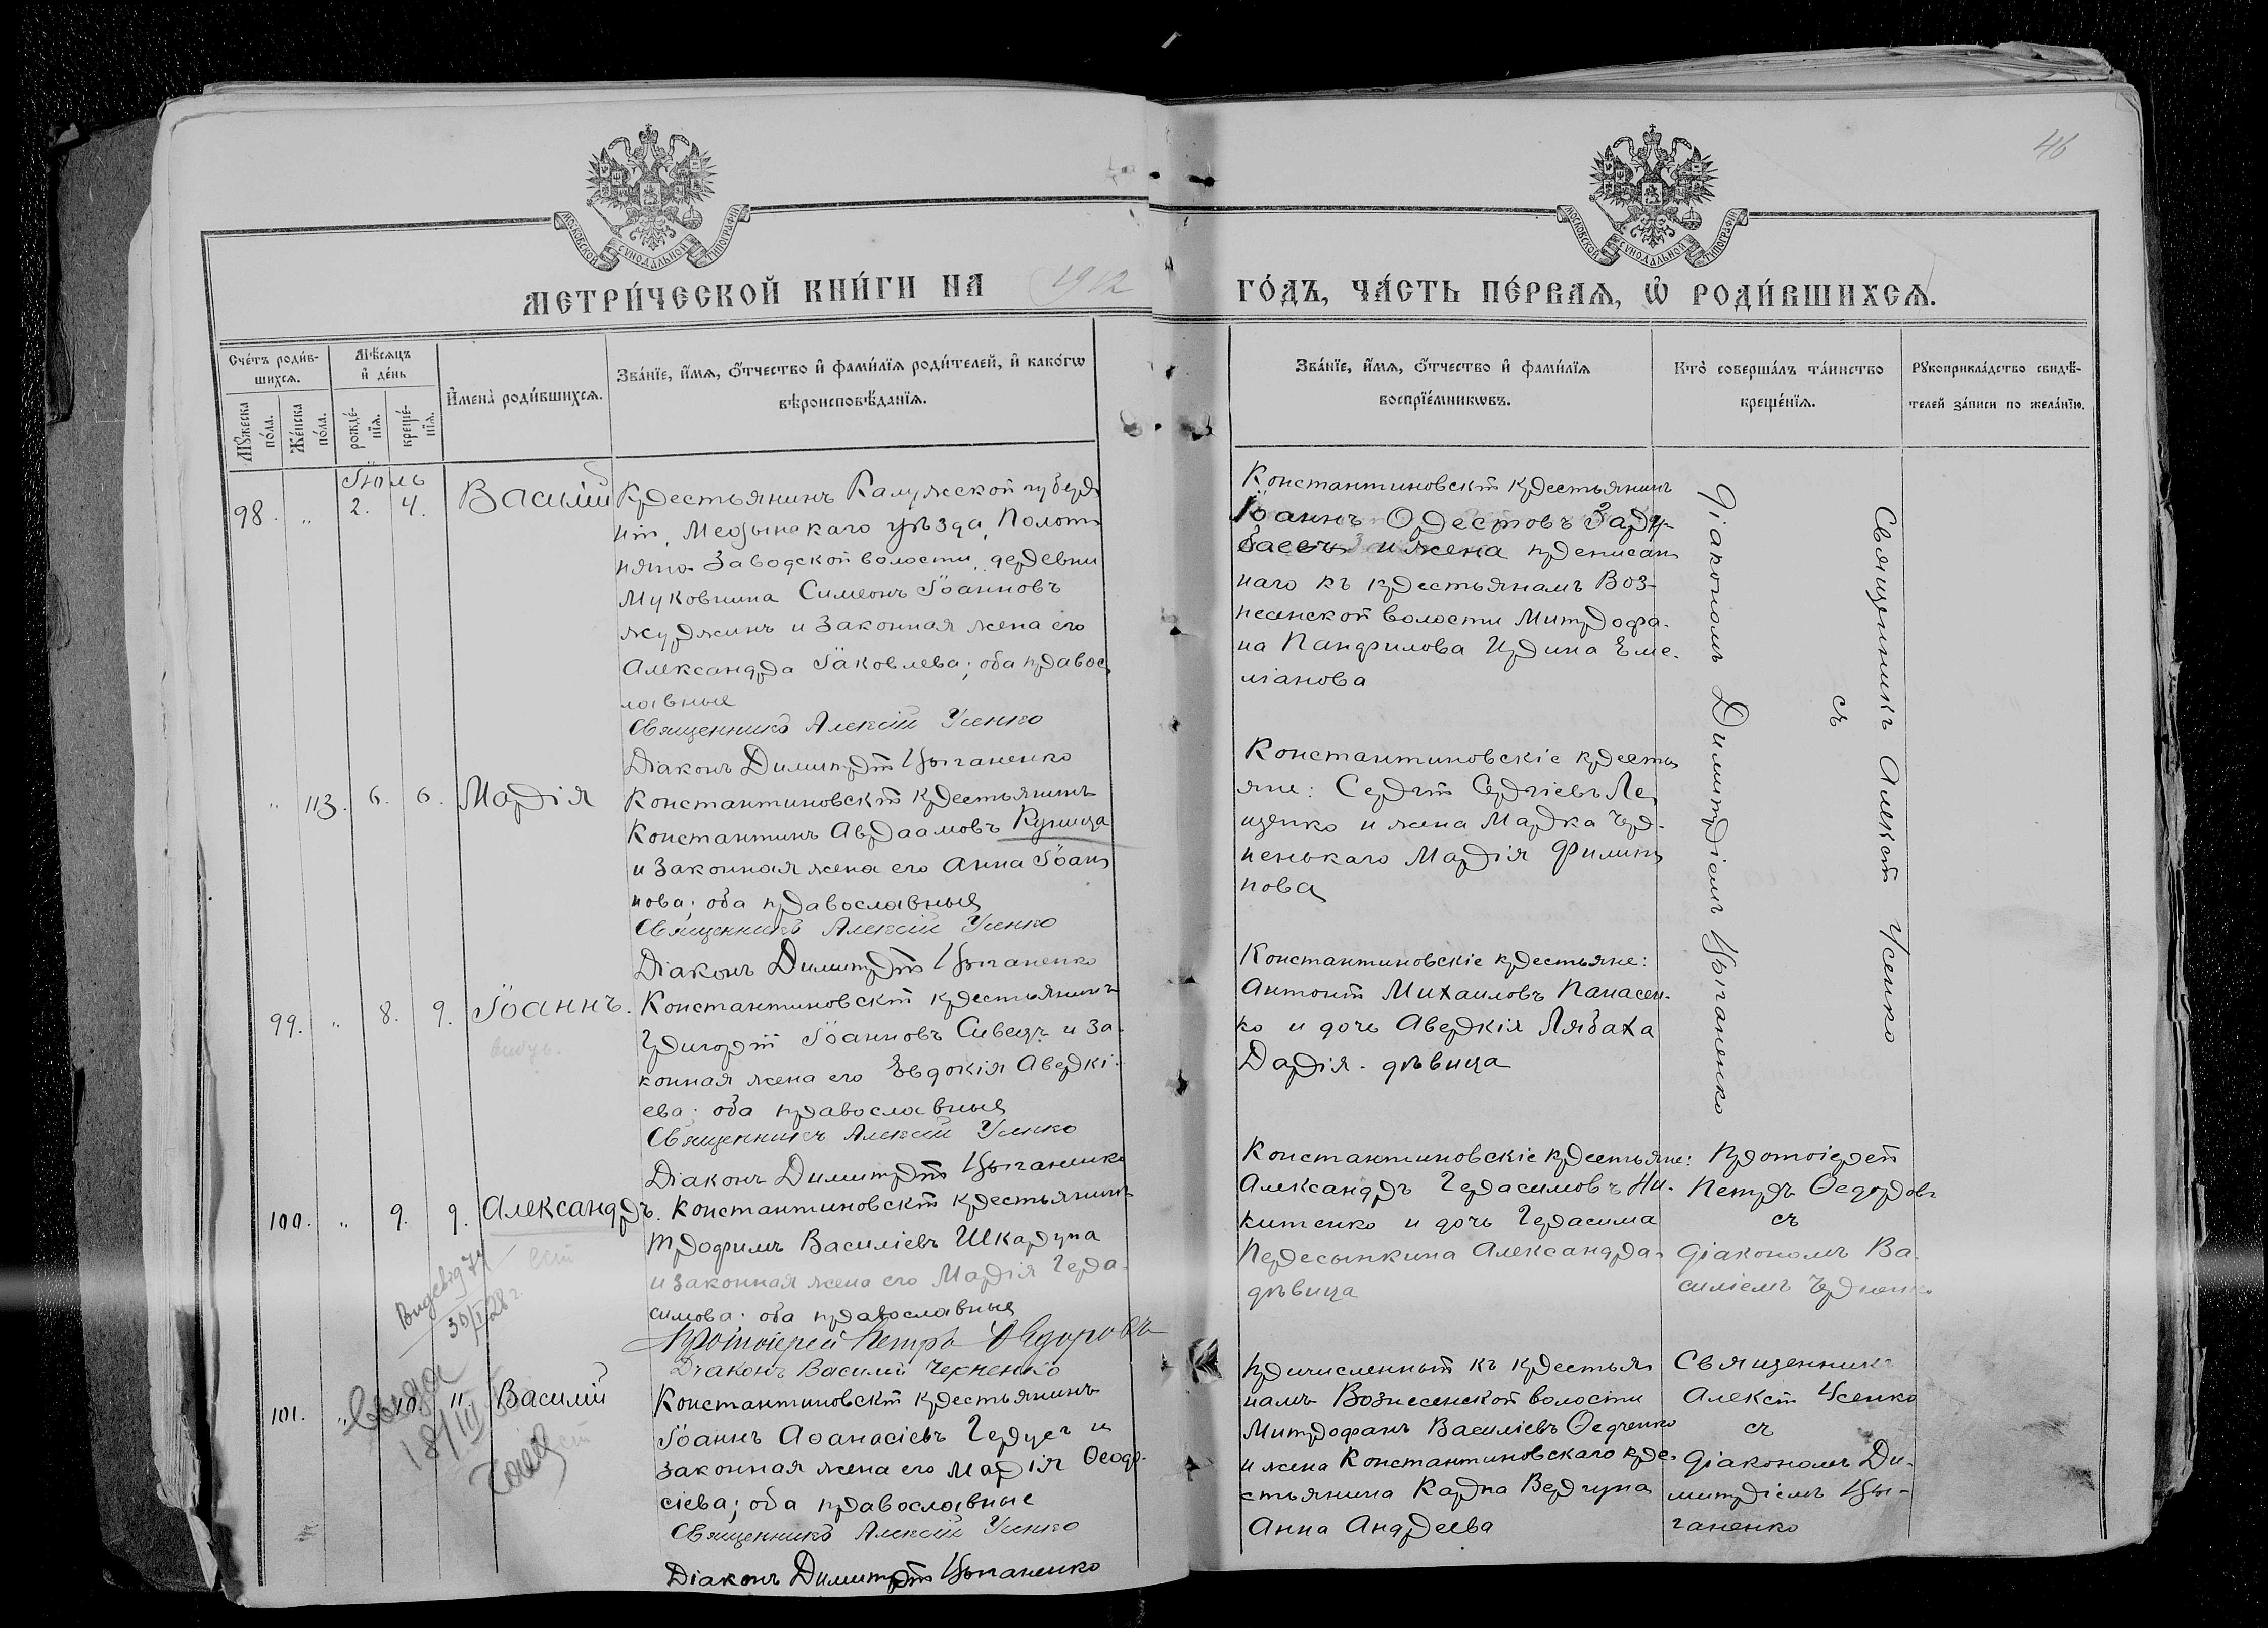 46
МОСКОВСКОЙ СУНОДАЛЬНОЙ ТИПОГРАФІИ
МОСКОВСКОЙ СУНОДАЛЬНОЙ ТИПОГРАФІИ
МЕТРИ́ЧЕСКОЙ КНИ́ГИ НА 1912
ГО́ДЪ, ЧА́СТЬ ПЕ́РВАѦ, Ѡ҆ РОДИ́ВШИХСѦ.
Сче́тъ роди́в-
шихсѧ.
Мꙋ́жеска
по́ла.
Же́нска
по́ла.
Мѣ́сѧцъ
и҆ де́нь
рожде́-
нїѧ.
креще́-
нїѧ.
И҆мена̀ роди́вшихсѧ.
Зва́нїе, и҆́мѧ, ѻ҆́тчество и҆ фами́лїѧ роди́телей, и҆ како́гѡ
вѣроисповѣ́данїѧ.
Зва́нїе, и҆́мѧ, ѻ҆́тчество и҆ фами́лїѧ
воспрїе́мникѡвъ.
Кто̀ соверша́лъ та́инство
креще́нїѧ.
Рꙋкоприкла́дство свидѣ́-
телей за́писи по жела́нїю.
Іюль
98. " 2. 4. Василій
Крестьянинъ Калужской губер-
ніи, Медынскаго уѣзда, Полот-
няно Заводской волости, деревни
Муковнина Симеонъ Іоанновъ
Журжинъ и законная жена его
Александра Іаковлева; оба правос-
лавные
Священникъ Алексій Усенко
Діаконъ Димитрій Цыганенко
Константиновскій крестьянинъ
Іоаннъ Орестовъ Зару-
баевъ и жена преписан-
наго къ крестьянамъ Воз-
несенской волости Митрофа-
на Панфилова Ирина Еме-
ліанова
Священникъ Алексій Усенко
съ
діакономъ Димитріемъ Цыганенко
" 113. 6. 6. Марія
Константиновскій крестьянинъ
Константинъ Авраамовъ Куница
и законная жена его Анна Іоан-
нова; оба православные
Священникъ Алексій Усенко
Діаконъ Димитрій Цыганенко
Константиновскіе кресть-
яне: Сергій Сергіевъ Ле-
щенко и жена Марка Чер-
ненькаго Марія Филип-
пова
99. " 8. 9. Іоаннъ.
Константиновскій крестьянинъ
Григорій Іоанновъ Сивецъ и за-
конная жена его Евдокія Аверкі-
ева; оба православные
Священникъ Алексій Усенко
Діаконъ Димитрій Цыганенко
Константиновскіе крестьяне:
Антоній Михаиловъ Панасен-
ко и дочь Аверкія Лябаха
Дарія - дѣвица
100. " 9. 9. Александръ.
30/I 28 г.
Константиновскій крестьянинъ
Трофимъ Василіевъ Шкарупа
и законная жена его Марія Гера-
симова; оба православные
Протоіерей Петръ Ѳедоровъ
Діаконъ Василій Черненко
Константиновскіе крестьяне:
Александръ Герасимовъ Ни-
китенко и дочь Герасима
Пересыпкина Александра -
дѣвица
Протоіерей
Петръ Ѳедоровъ
съ
діакономъ Ва-
силіемъ Черненко
101. " 10. 11. Василій
18/III
Константиновскій крестьянинъ
Іоаннъ Аѳанасіевъ Герцег и
законная жена его Марія Ѳеодо-
сіева; оба православные
Священникъ Алексій Усенко
Діаконъ Димитрій Цыганенко
Причисленный къ крестья-
намъ Вознесенской волости
Митрофанъ Василіевъ Ѳедченко
и жена Константиновскаго кре-
стьянина Карпа Вергуна
Анна Андреева
Священникъ
Алексій Усенко
съ
діакономъ Ди-
митріемъ Цы-
ганенко